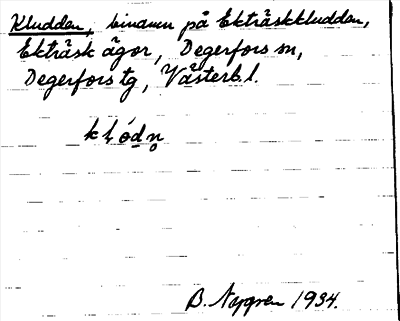 Kludden, binamn på Ekträskkludden,
Ekträsk ägor, Degerfors sn,
Degerfors tg, Västerb. l.
B. Nygren 1934.